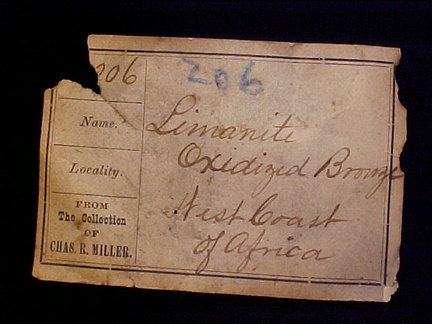 206
206
Name.
Limanite
Oxidized Bronze
Locality.
West Coast
of Africa
FROM
The Collection
OF
CHAS. R. MILLER.